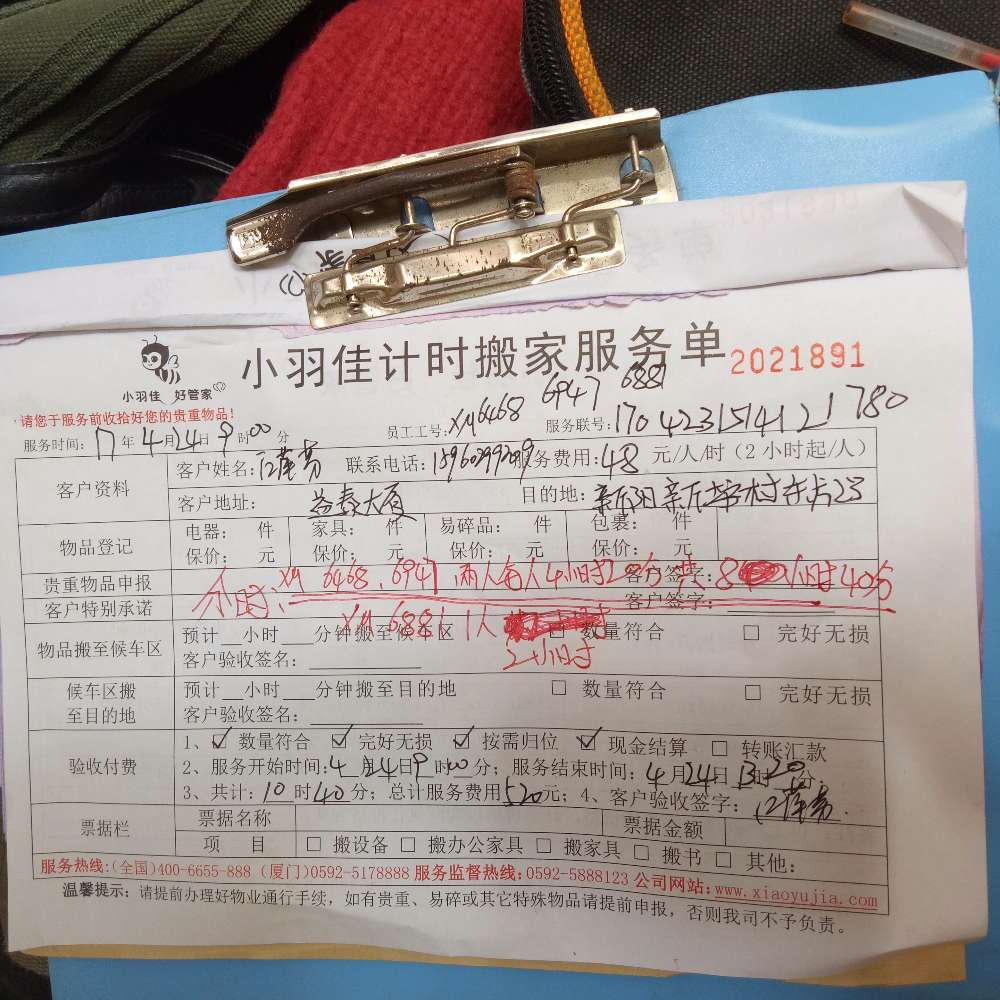 小羽佳 好管家
小羽佳计时搬家服务单 2021891
请您于服务前收拾好您的贵重物品!
服务时间: 17年4月24日9时00分 员工工号: XM6468 6947 6881 服务联号:
客户资料 客户姓名: 联系电话: 服务费用: 48 元/人/时 (2小时起/人)
客户地址: 益泰大厦 目的地: 新阳新垵村
物品登记 电器: 件 家具: 件 易碎品: 件 包裹: 件
保价: 元 保价: 元 保价: 元 保价: 元
贵重物品申报 客户签字:
客户特别承诺 客户签字:
小时: XM 6468、6947, 两人每人4小时20分 共: 8小时40分
XM 6881 1人
2小时
物品搬至候车区 预计__小时___分钟搬至候车区 □ 数量符合 □ 完好无损
客户验收签名:
候车区搬至目的地 预计__小时___分钟搬至目的地 □ 数量符合 □ 完好无损
客户验收签名:
验收付费 1、☑ 数量符合 ☑ 完好无损 ☑ 按需归位 ☑ 现金结算 □ 转账汇款
2、服务开始时间: 4月24日9时00分; 服务结束时间: 4月24日13时20分;
3、共计: 10时40分; 总计服务费用520元; 4、客户验收签字:
票据栏 票据名称 票据金额
项 目 □ 搬设备 □ 搬办公家具 □ 搬家具 □ 搬书 □ 其他:
服务热线:(全国)400-6655-888 (厦门)0592-5178888 服务监督热线:0592-5888123 公司网站:www.xiaoyujia.com
温馨提示: 请提前办理好物业通行手续, 如有贵重、易碎或其它特殊物品请提前申报, 否则我司不予负责。